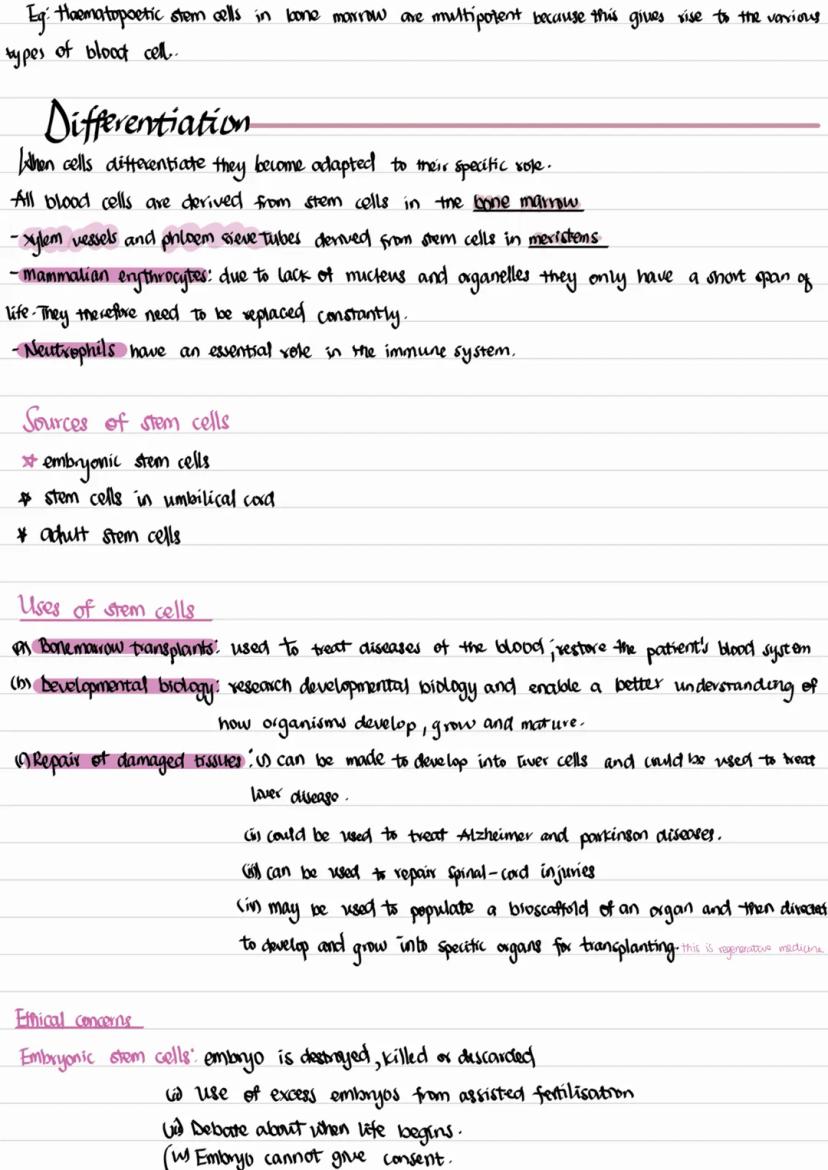 Eg: Haematopoetic stem cells in bone marrow are multipotent because this gives rise to the various
types of blood cell.
Differentiation
When cells differentiate they become adapted to their specific role.
All blood cells are derived from stem cells in the bone marrow
- xylem vessels and phloem sieve tubes derived from stem cells in meristems
- mammalian erythrocytes: due to lack of nucleus and organelles they only have a short span of
life. They therefore need to be replaced constantly.
- Neutrophils have an essential role in the immune system.
Sources of stem cells
☆ embryonic stem cells
☆ stem cells in umbilical cord
* adult stem cells
Uses of stem cells
(a) Bone marrow transplants: used to treat diseases of the blood ; restore the patient's blood system
(b) Developmental biology: research developmental biology and enable a better understanding of
how organisms develop, grow and mature.
(c) Repair of damaged tissues: (i) can be made to develop into liver cells and could be used to treat
liver disease.
(ii) could be used to treat Alzheimer and parkinson diseases.
(iii) can be used to repair spinal-cord injuries
(iv) may be used to populate a bioscaffold of an organ and then directed
to develop and grow into specific organs for transplanting. this is regenerative medicine.
Ethical concerns
Embryonic stem cells: embryo is destroyed, killed or discarded
(i) Use of excess embryos from assisted fertilisation
(ii) Debate about when life begins.
(iii) Embryo cannot give consent.